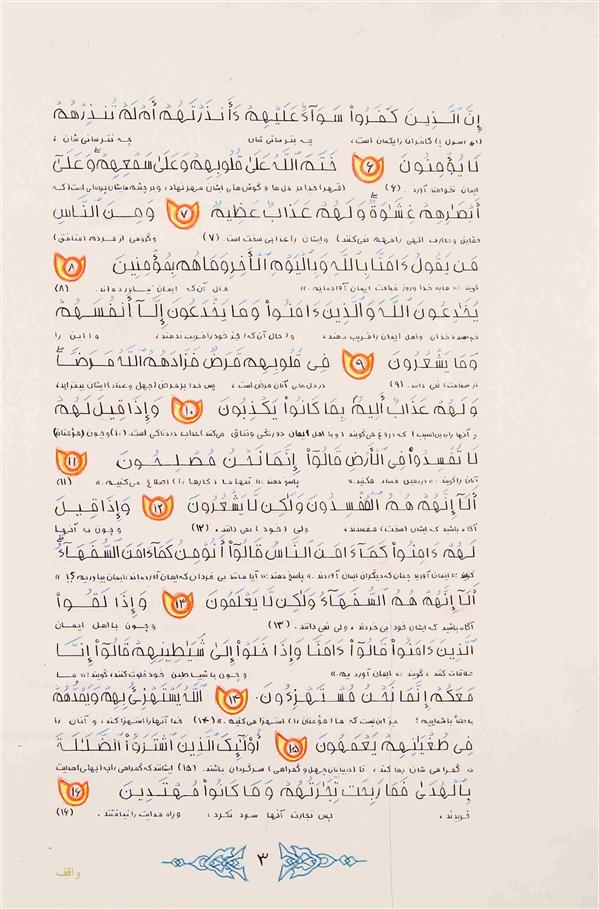 إِنَّ ٱلَّذِينَ كَفَرُوا۟ سَوَآءٌ عَلَيْهِمْ ءَأَنذَرْتَهُمْ أَمْ لَمْ تُنذِرْهُمْ
(ای رسول !) کافران را یکسان است ، چه بترسانی شان چه نترسانی شان ،
لَا يُؤْمِنُونَ ۶ خَتَمَ ٱللَّهُ عَلَىٰ قُلُوبِهِمْ وَعَلَىٰ سَمْعِهِمْ وَعَلَىٰٓ
ایمان نخواهند آورد . (۶) (قهر) خدا بر دل ها و گوش های ایشان مهر نهاد ، و بر چشم هایشان پرده ای است (که
أَبْصَٰرِهِمْ غِشَٰوَةٌ وَلَهُمْ عَذَابٌ عَظِيمٌ ۷ وَمِنَ ٱلنَّاسِ
حقایق و معارف الهی را فهم نمی کنند) و ایشان را عذابی سخت است . (۷) و گروهی از مردم (منافق)
مَن يَقُولُ ءَامَنَّا بِٱللَّهِ وَبِٱلْيَوْمِ ٱلْءَاخِرِ وَمَا هُم بِمُؤْمِنِينَ ۸
گویند : «ما به خدا و روز قیامت ایمان آورده ایم .» حال آن که ایمان نیاورده اند . (۸)
يُخَٰدِعُونَ ٱللَّهَ وَٱلَّذِينَ ءَامَنُوا۟ وَمَا يَخْدَعُونَ إِلَّآ أَنفُسَهُمْ
خواهند تا خدا و اهل ایمان را فریب دهند ، و (حال آن که) جز خود را فریب ندهند ، و این را
وَمَا يَشْعُرُونَ ۹ فِى قُلُوبِهِم مَّرَضٌ فَزَادَهُمُ ٱللَّهُ مَرَضًا
از سفاهت) نمی دانند . (۹) در دل های آنان مرض است ، پس خدا بر مرض (جهل و عناد) ایشان بیفزاید ،
وَلَهُمْ عَذَابٌ أَلِيمٌۢ بِمَا كَانُوا۟ يَكْذِبُونَ ۱۰ وَإِذَا قِيلَ لَهُمْ
و آنها را بدین (سبب) که دروغ می گویند (و با اهل ایمان دورنگی و نفاق می کنند) عذاب دردناکی است . (۱۰) و چون (مؤمنان)
لَا تُفْسِدُوا۟ فِى ٱلْأَرْضِ قَالُوٓا۟ إِنَّمَا نَحْنُ مُصْلِحُونَ ۱۱
آنان را گویند : «در زمین فساد مکنید .» پاسخ دهند : «تنها ما (کارها را) اصلاح می کنیم .» (۱۱)
أَلَآ إِنَّهُمْ هُمُ ٱلْمُفْسِدُونَ وَلَٰكِن لَّا يَشْعُرُونَ ۱۲ وَإِذَا قِيلَ
آگاه باشید که ایشان (سخت) مفسدند ، ولی (خود) نمی دانند . (۱۲) و چون به آنها
لَهُمْ ءَامِنُوا۟ كَمَآ ءَامَنَ ٱلنَّاسُ قَالُوٓا۟ أَنُؤْمِنُ كَمَآ ءَامَنَ ٱلسُّفَهَآءُ
گویند : «ایمان آورید چنان که دیگران ایمان آوردند .» پاسخ دهند : «آیا مانند بی خردان که ایمان آورده اند ، ایمان بیاوریم ؟! »
أَلَآ إِنَّهُمْ هُمُ ٱلسُّفَهَآءُ وَلَٰكِن لَّا يَعْلَمُونَ ۱۳ وَإِذَا لَقُوا۟
آگاه باشید که ایشان خود بی خردند ، ولی نمی دانند . (۱۳) و چون با اهل ایمان
ٱلَّذِينَ ءَامَنُوا۟ قَالُوٓا۟ ءَامَنَّا وَإِذَا خَلَوْا۟ إِلَىٰ شَيَٰطِينِهِمْ قَالُوٓا۟ إِنَّا
ملاقات کنند ، گویند : «ایمان آوردیم .» و چون با شیاطین خود خلوت کنند ، گویند : «ما
مَعَكُمْ إِنَّمَا نَحْنُ مُسْتَهْزِءُونَ ۱۴ ٱللَّهُ يَسْتَهْزِئُ بِهِمْ وَيَمُدُّهُمْ
با شماییم ؛ جز این نیست که ما (مؤمنان را) استهزا می کنیم .» (۱۴) خدا آنها را استهزا کند ، و آنان را
فِى طُغْيَٰنِهِمْ يَعْمَهُونَ ۱۵ أُو۟لَٰٓئِكَ ٱلَّذِينَ ٱشْتَرَوُا۟ ٱلضَّلَٰلَةَ
در گمراهی شان رها کند ، تا (در بیابان جهل و گمراهی) سرگردان باشند . (۱۵) ایشانند که گمراهی را به (بهای) هدایت
بِٱلْهُدَىٰ فَمَا رَبِحَت تِّجَٰرَتُهُمْ وَمَا كَانُوا۟ مُهْتَدِينَ ۱۶
خریدند ، پس تجارت آنها سود نکرد ، و راه هدایت را نیافتند . (۱۶)
۳
واقف